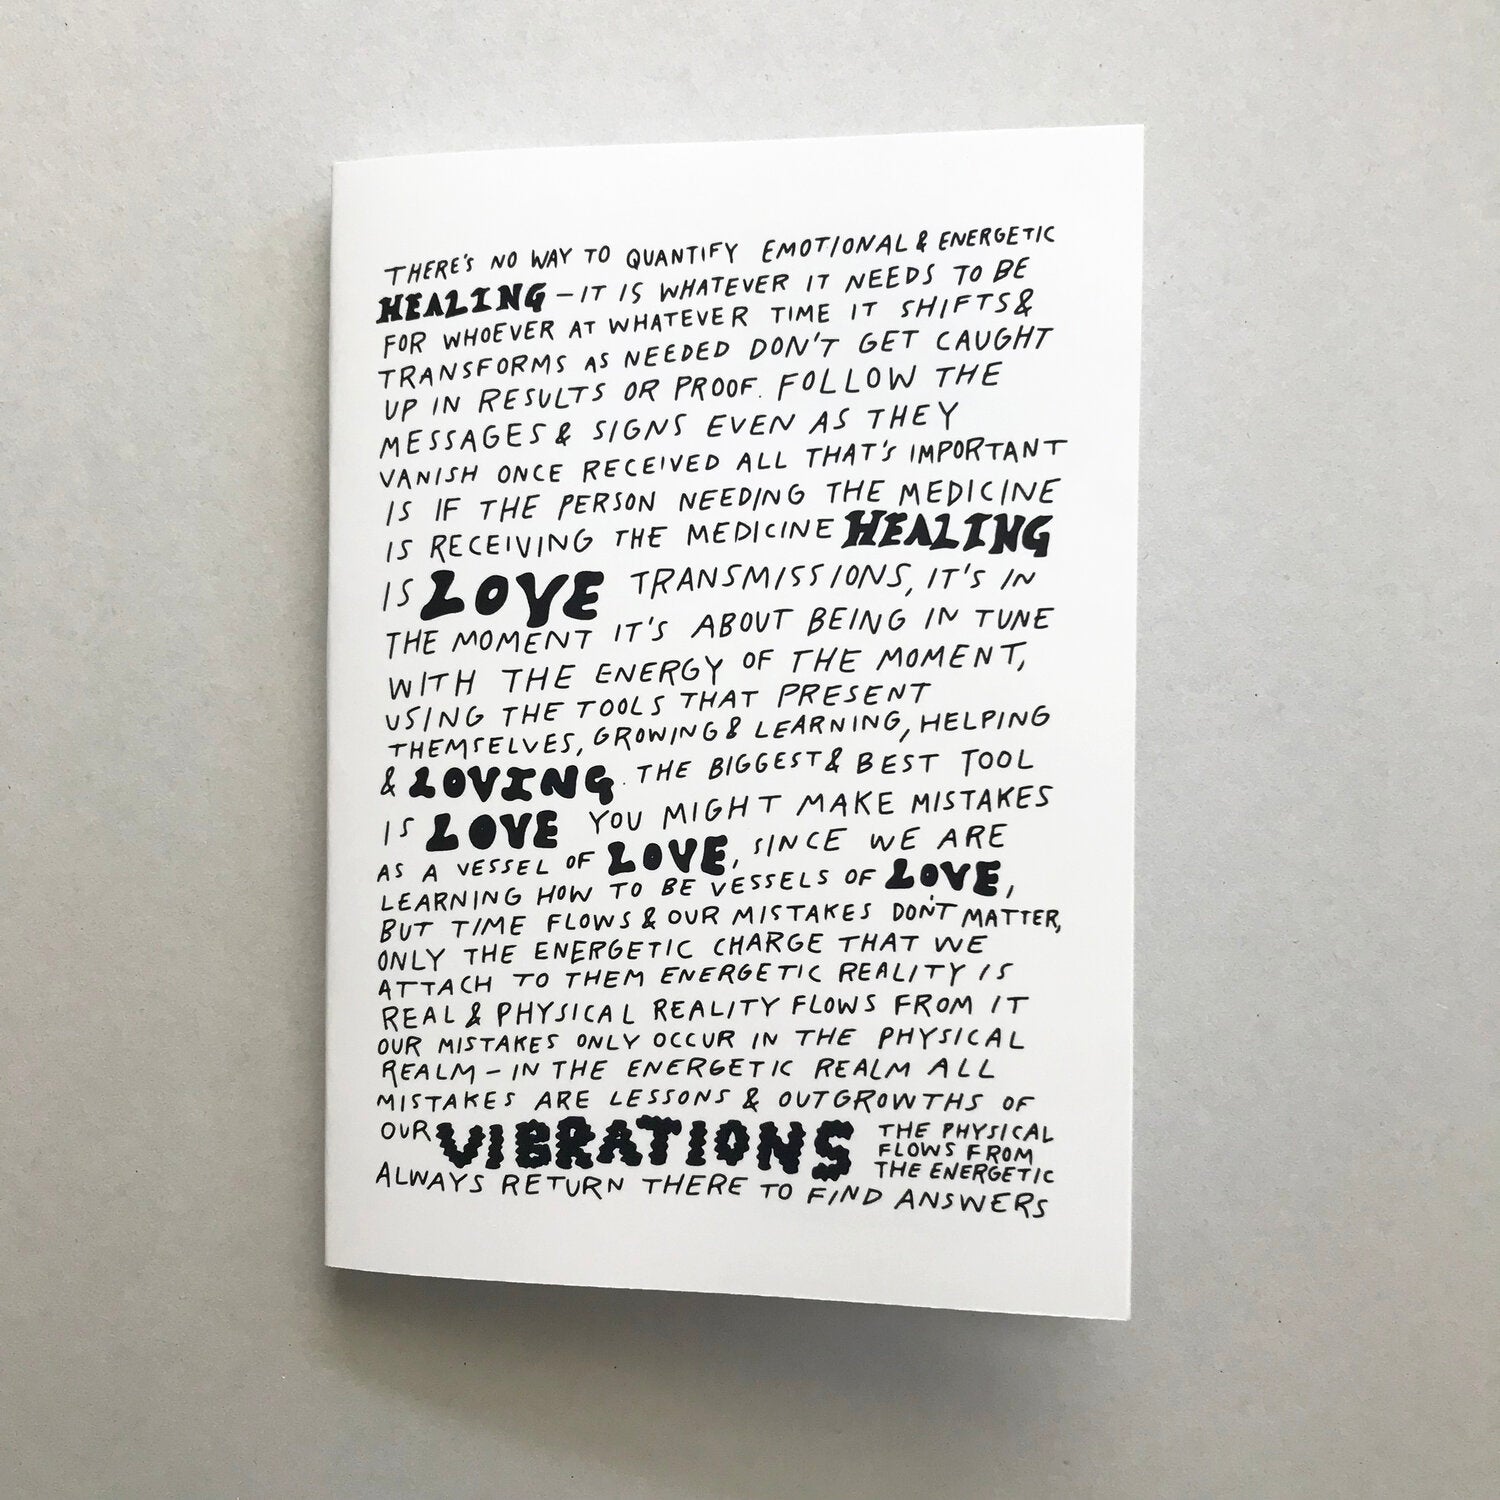 THERE'S NO WAY TO QUANTIFY EMOTIONAL & ENERGETIC
HEALING – IT IS WHATEVER IT NEEDS TO BE
FOR WHOEVER AT WHATEVER TIME IT SHIFTS &
TRANSFORMS AS NEEDED DON'T GET CAUGHT
UP IN RESULTS OR PROOF. FOLLOW THE
MESSAGES & SIGNS EVEN AS THEY
VANISH ONCE RECEIVED ALL THAT'S IMPORTANT
IS IF THE PERSON NEEDING THE MEDICINE
IS RECEIVING THE MEDICINE HEALING
IS LOVE TRANSMISSIONS, IT'S IN
THE MOMENT IT'S ABOUT BEING IN TUNE
WITH THE ENERGY OF THE MOMENT,
USING THE TOOLS THAT PRESENT
THEMSELVES, GROWING & LEARNING, HELPING
& LOVING. THE BIGGEST & BEST TOOL
IS LOVE YOU MIGHT MAKE MISTAKES
AS A VESSEL OF LOVE, SINCE WE ARE
LEARNING HOW TO BE VESSELS OF LOVE,
BUT TIME FLOWS & OUR MISTAKES DON'T MATTER,
ONLY THE ENERGETIC CHARGE THAT WE
ATTACH TO THEM ENERGETIC REALITY IS
REAL & PHYSICAL REALITY FLOWS FROM IT
OUR MISTAKES ONLY OCCUR IN THE PHYSICAL
REALM – IN THE ENERGETIC REALM ALL
MISTAKES ARE LESSONS & OUTGROWTHS OF
OUR VIBRATIONS THE PHYSICAL
FLOWS FROM
THE ENERGETIC
ALWAYS RETURN THERE TO FIND ANSWERS